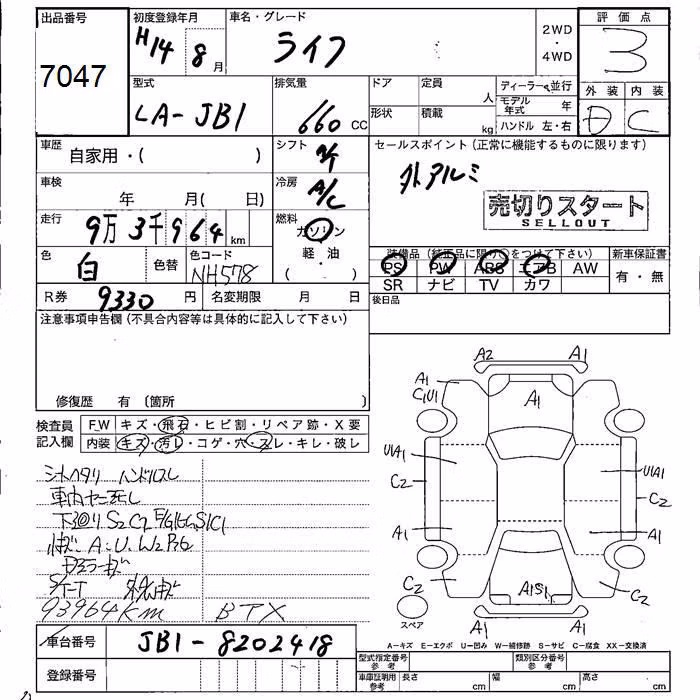 出品番号
7047
初度登録年月
H14 8月
車名・グレード
ライフ
2WD
・
4WD
評価点
3
外装 内装
D C
型式
LA-JB1
排気量
660 CC
ドア
定員
人
形状
積載
kg
ディーラー・並行
モデル年式 年
ハンドル 左・右
車歴
自家用・( )
シフト
セールスポイント(正常に機能するものに限ります)
外アルミ
売切りスタート
SELLOUT
車検
年 月( 日)
冷房
A/C
走行
9万3千964 km
燃料
ガソリン
軽・油
( )
色
白
色替
色コード
NH578
装備品(純正品に限り○をつけて下さい)
PS PW ABS エアB AW
SR ナビ TV カワ
新車保証書
有・無
後日品
R券
9330円
名変期限 月 日
注意事項申告欄(不具合内容等は具体的に記入して下さい)
修復歴 有〔箇所 〕
検査員
記入欄
F.W キズ・飛石・ヒビ割・リペア跡・X要
内装 キズ・汚レ・コゲ・穴・スレ・キレ・破レ
シートヘタリ ハンドルスレ
下廻りS2C2
93964km BTX
A2 A1
A1
C1U1
A1
A1
U1A1
C2
U1A1
C2
A1
A1
C2
A1S1
C2
A1
A1
スペア
A-キズ E-エクボ U-凹み W-補修跡 S-サビ C-腐食 XX-交換済
車台番号
JB1-8202418
登録番号
型式指定番号
参考
類別区分番号
参考
車庫証明用
参考
長さ cm
幅 cm
高さ cm